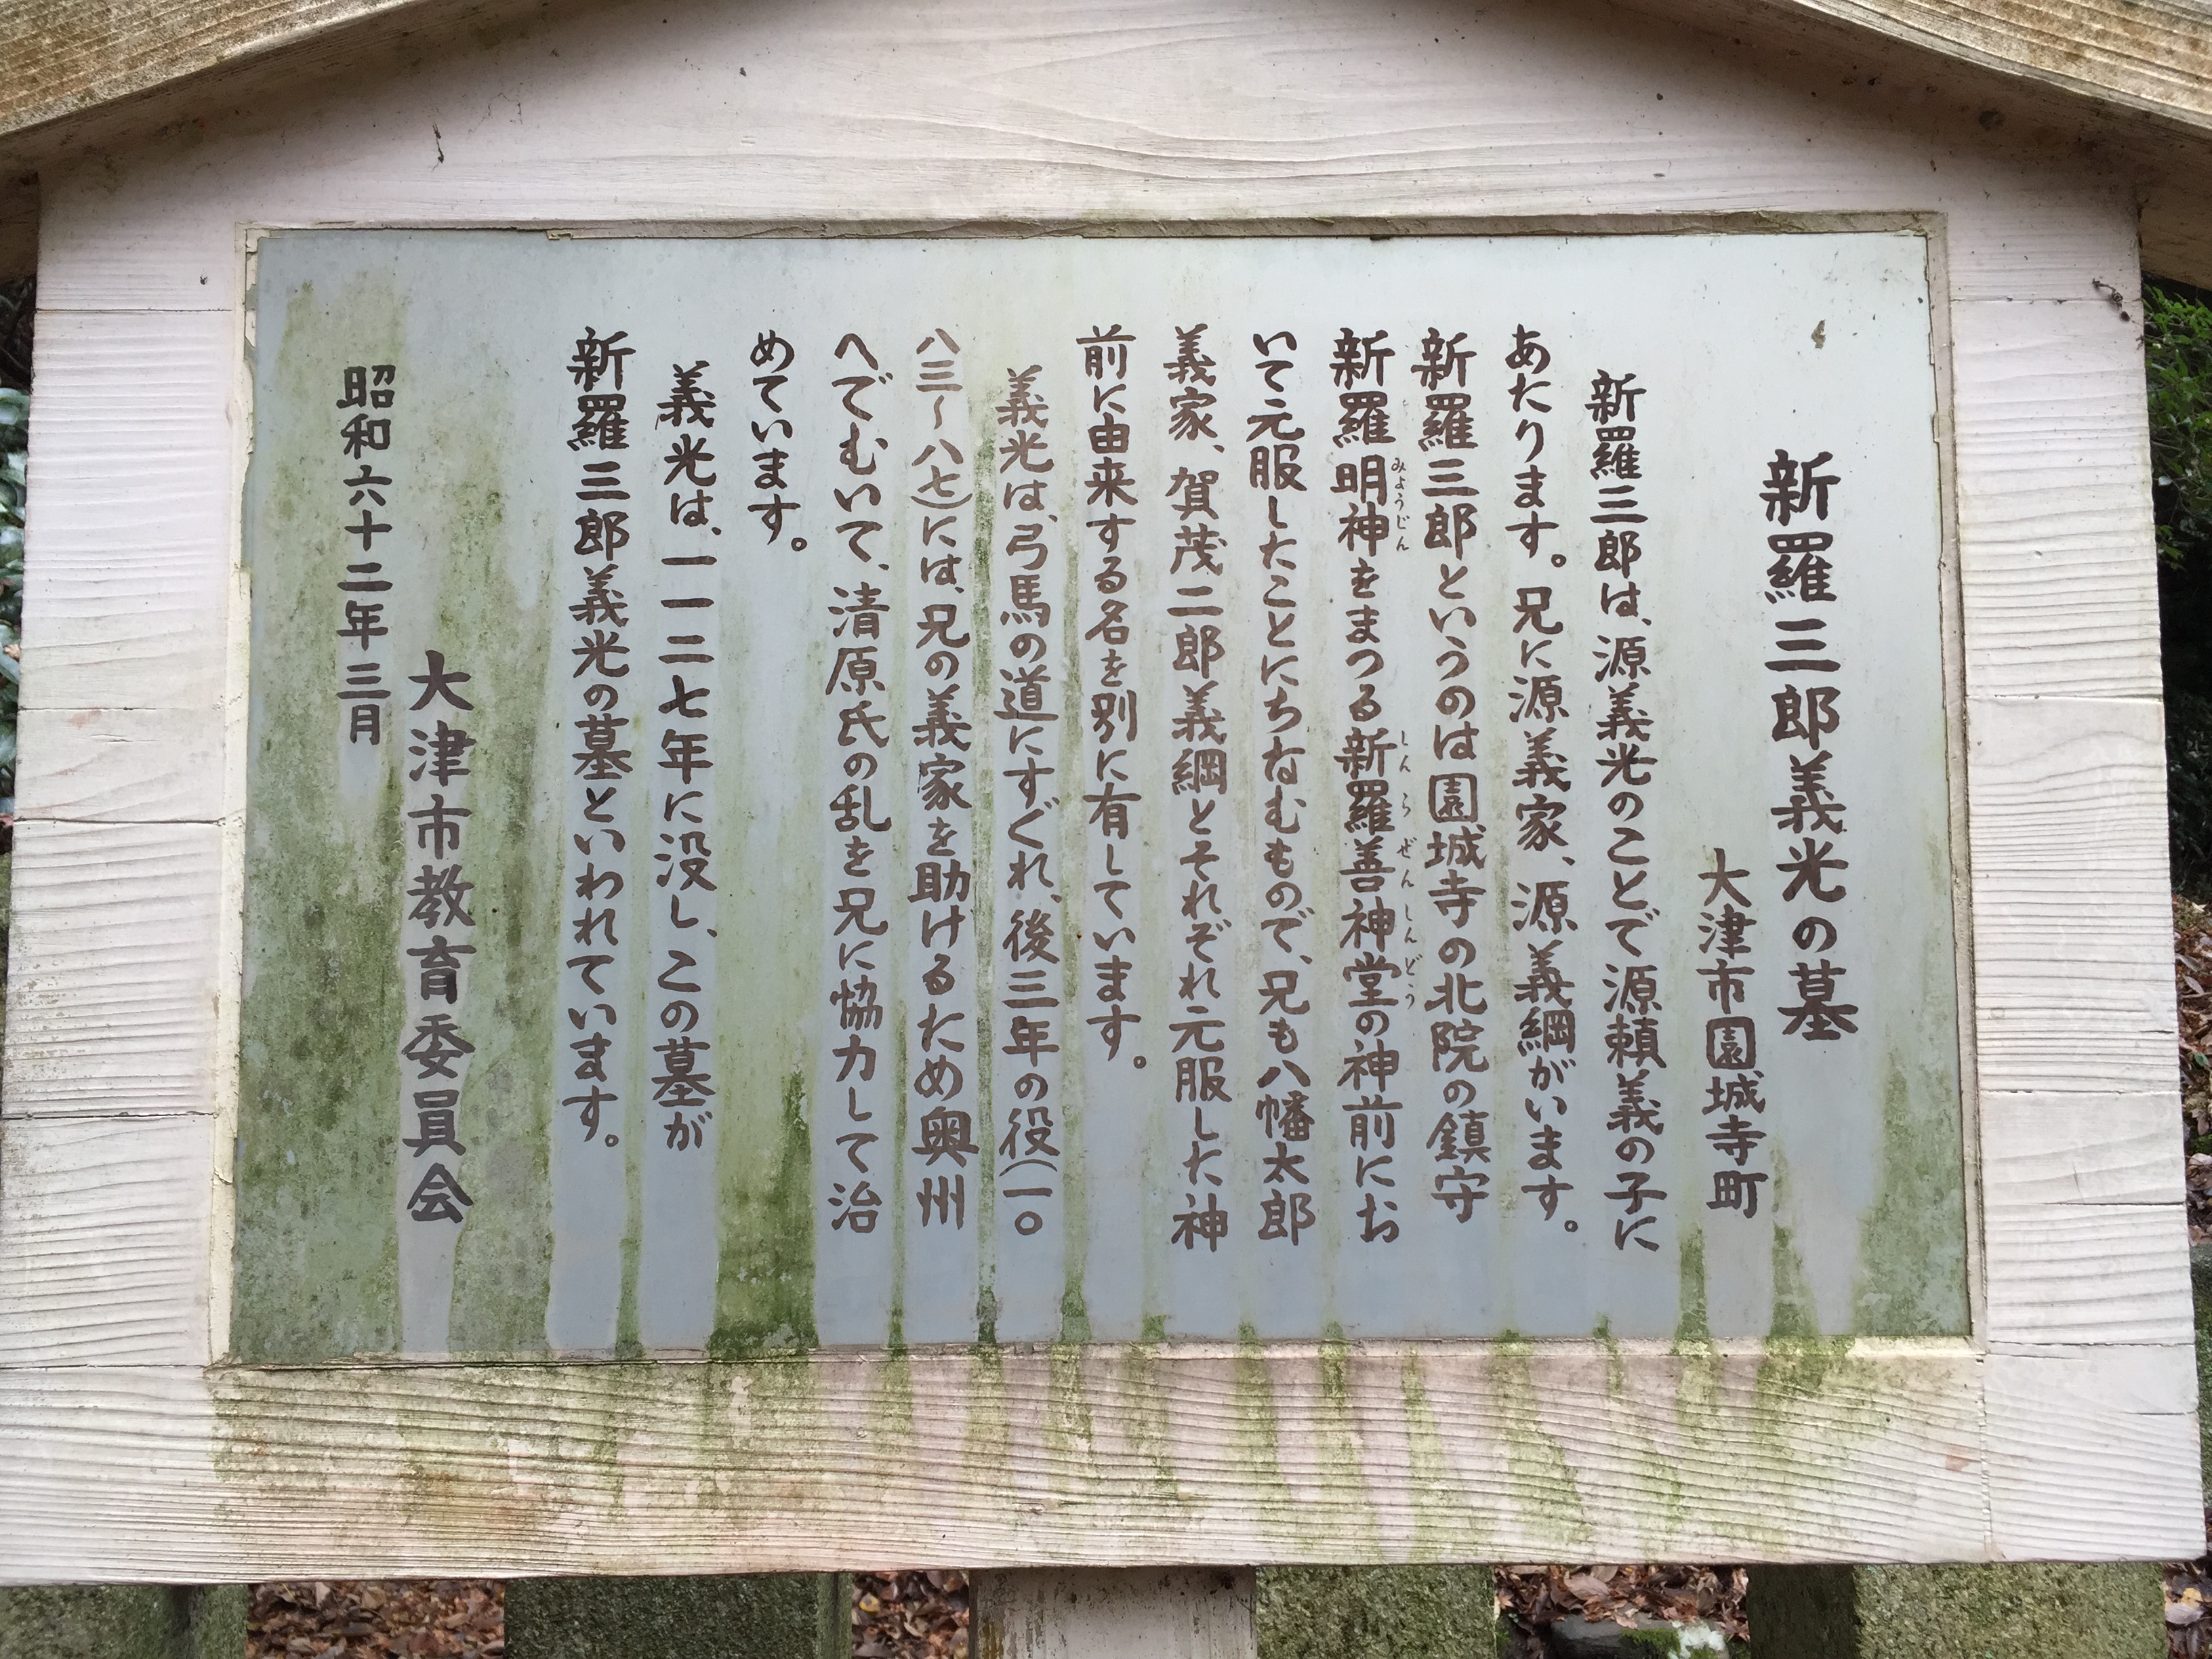 新羅三郎義光の墓
大津市園城寺町
新羅三郎は、源義光のことで源頼義の子に
あたります。兄に源義家、源義綱がいます。
新羅三郎というのは園城寺の北院の鎮守
新羅明神をまつる新羅善神堂の神前にお
みょうじん
しんらぜんしんどう
いて元服したことにちなむもので、兄も八幡太郎
義家、賀茂二郎義綱とそれぞれ元服した神
前に由来する名を別に有しています。
義光は、弓馬の道にすぐれ、後三年の役(一〇
八三〜八七)には、兄の義家を助けるため奥州
へでむいて、清原氏の乱を兄に協力して治
めています。
義光は、一一二七年に没し、この墓が
新羅三郎義光の墓といわれています。
大津市教育委員会
昭和六十二年三月